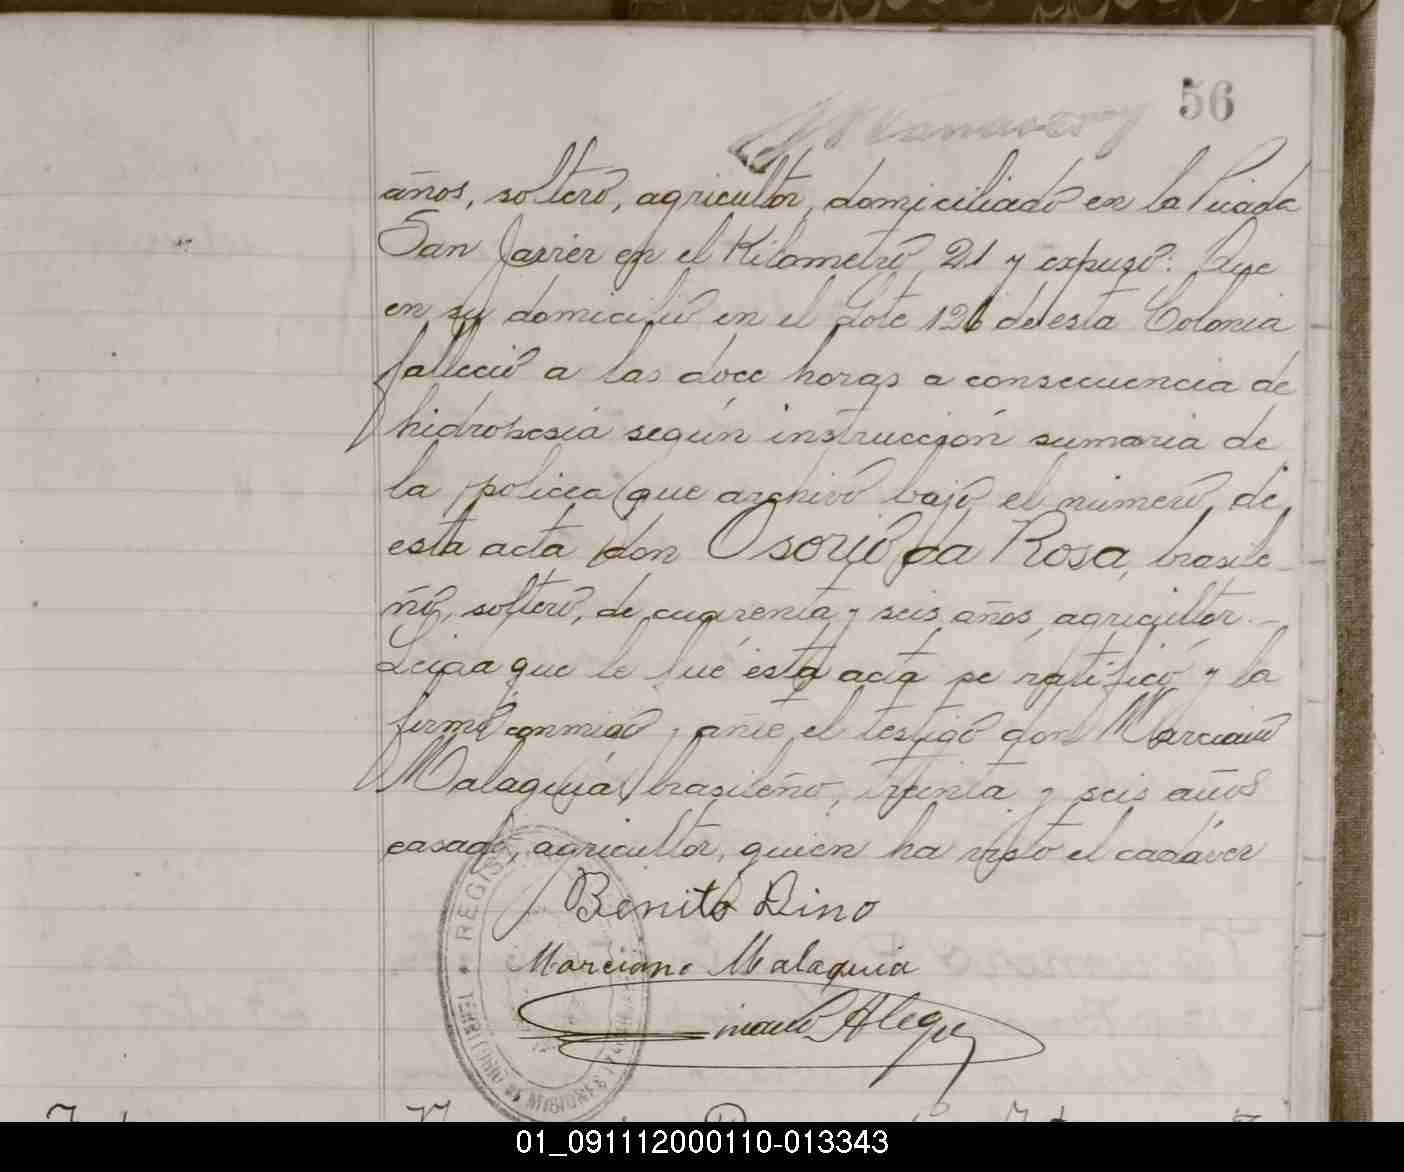 56
años, soltero, agricultor, domiciliado en la Picada
San Javier en el Kilometro 21 y expuso: Que
en su domicilio en el Lote 126 de esta Colonia
falleció a las doce horas a consecuencia de
hidropesia según instrucción sumaria de
la policia que archivo bajo el número de
esta acta don Osorio da Rosa, brasile-
ño, soltero, de cuarenta y seis años, agricultor.-
Leida que le fué esta acta se ratificó y la
firmó conmigo y ante el testigo don Marciano
Malaquias, brasileño, treinta y seis años
casado, agricultor, quien ha visto el cadáver
Benito Dino
Marciano Malaquia
REGIS
TERRITORIO DE MISIONES
01_091112000110-013343